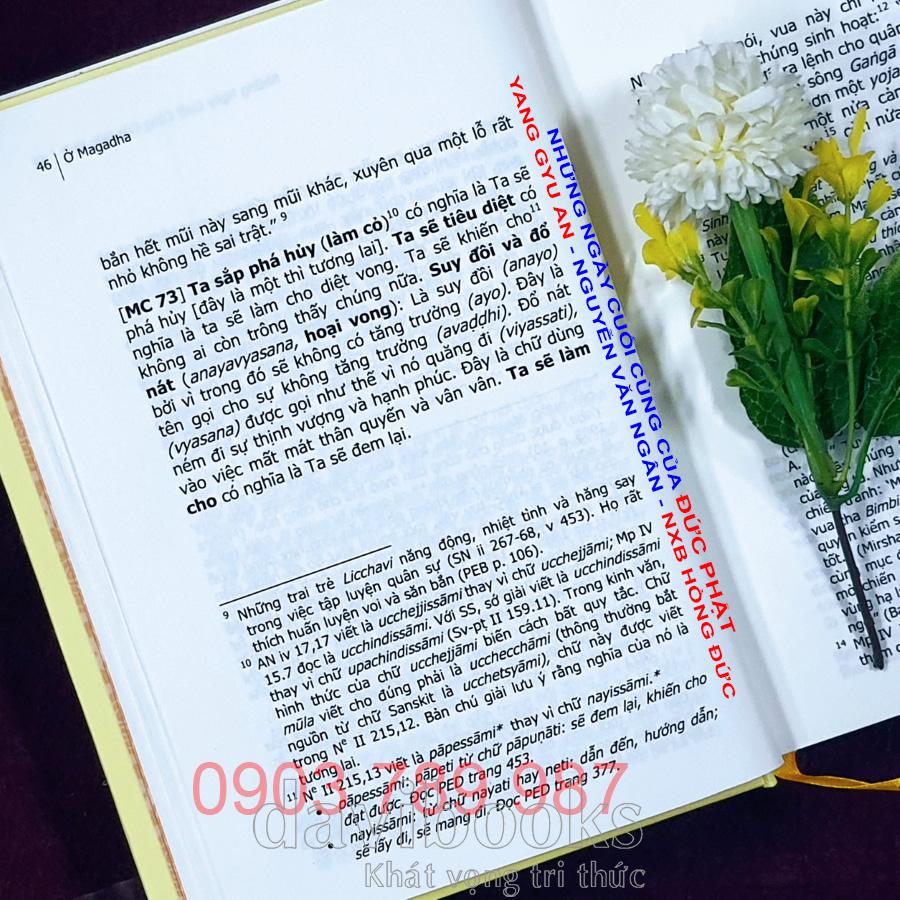 46 Ở Magadha
bắn hết mũi này sang mũi khác, xuyên qua một lỗ rất
nhỏ không hề sai trật."⁹
[MC 73] Ta sắp phá hủy (làm cỏ)¹⁰ có nghĩa là Ta sẽ
phá hủy [đây là một thì tương lai]. Ta sẽ tiêu diệt có
nghĩa là ta sẽ làm cho diệt vong. Ta sẽ khiến cho¹¹
không ai còn trông thấy chúng nữa. Suy đồi và đổ
nát (anayavyasana, hoại vong): Là suy đồi (anayo)
bởi vì trong đó sẽ không có tăng trưởng (ayo). Đây là
tên gọi cho sự không tăng trưởng (avaḍḍhi). Đổ nát
(vyasana) được gọi như thế vì nó quăng đi (viyassati),
ném đi sự thịnh vượng và hạnh phúc. Đây là chữ dùng
vào việc mất mát thân quyến và vân vân. Ta sẽ làm
cho có nghĩa là Ta sẽ đem lại.
⁹ Những trai trẻ Licchavi năng động, nhiệt tình và hăng say
trong việc tập luyện quân sự (SN ii 267-68, v 453). Họ rất
thích huấn luyện voi và săn bắn (PEB p. 106).
¹⁰ AN iv 17,17 viết là ucchejjissāmi thay vì chữ ucchejjāmi; Mp IV
15.7 đọc là ucchindissāmi. Với SS, sớ giải viết là ucchindissāmi
thay vì chữ upachindissāmi (Sv-pṭ II 159.11). Trong kinh văn,
hình thức của chữ ucchejjāmi biến cách bất quy tắc. Chữ
mūla viết cho đúng phải là ucchecchāmi (thông thường bắt
nguồn từ chữ Sanskit là ucchetsyāmi), chữ này được viết
trong Nᵉ II 215,12. Bản chú giải lưu ý rằng nghĩa của nó là
tương lai.
¹¹ Nᵉ II 215,13 viết là pāpessāmi* thay vì chữ nayissāmi.*
• pāpessāmi: pāpeti từ chữ pāpuṇāti: sẽ đem lại, khiến cho
đạt được. Đọc PED trang 453.
• nayissāmi: từ chữ nayati hay neti: dẫn đến, hướng dẫn;
sẽ lấy đi, sẽ mang đi. Đọc PED trang 377.
NHỮNG NGÀY CUỐI CÙNG CỦA ĐỨC PHẬT
YANG GYU AN - NGUYỄN VĂN NGÂN - NXB HỒNG ĐỨC
nói, vua này chỉ
chúng sinh hoạt:¹²
ra lệnh cho quân
sông Gaṅgā
hơn một yoja
một nửa cản
0903 789 987
davibooks
Khát vọng tri thức